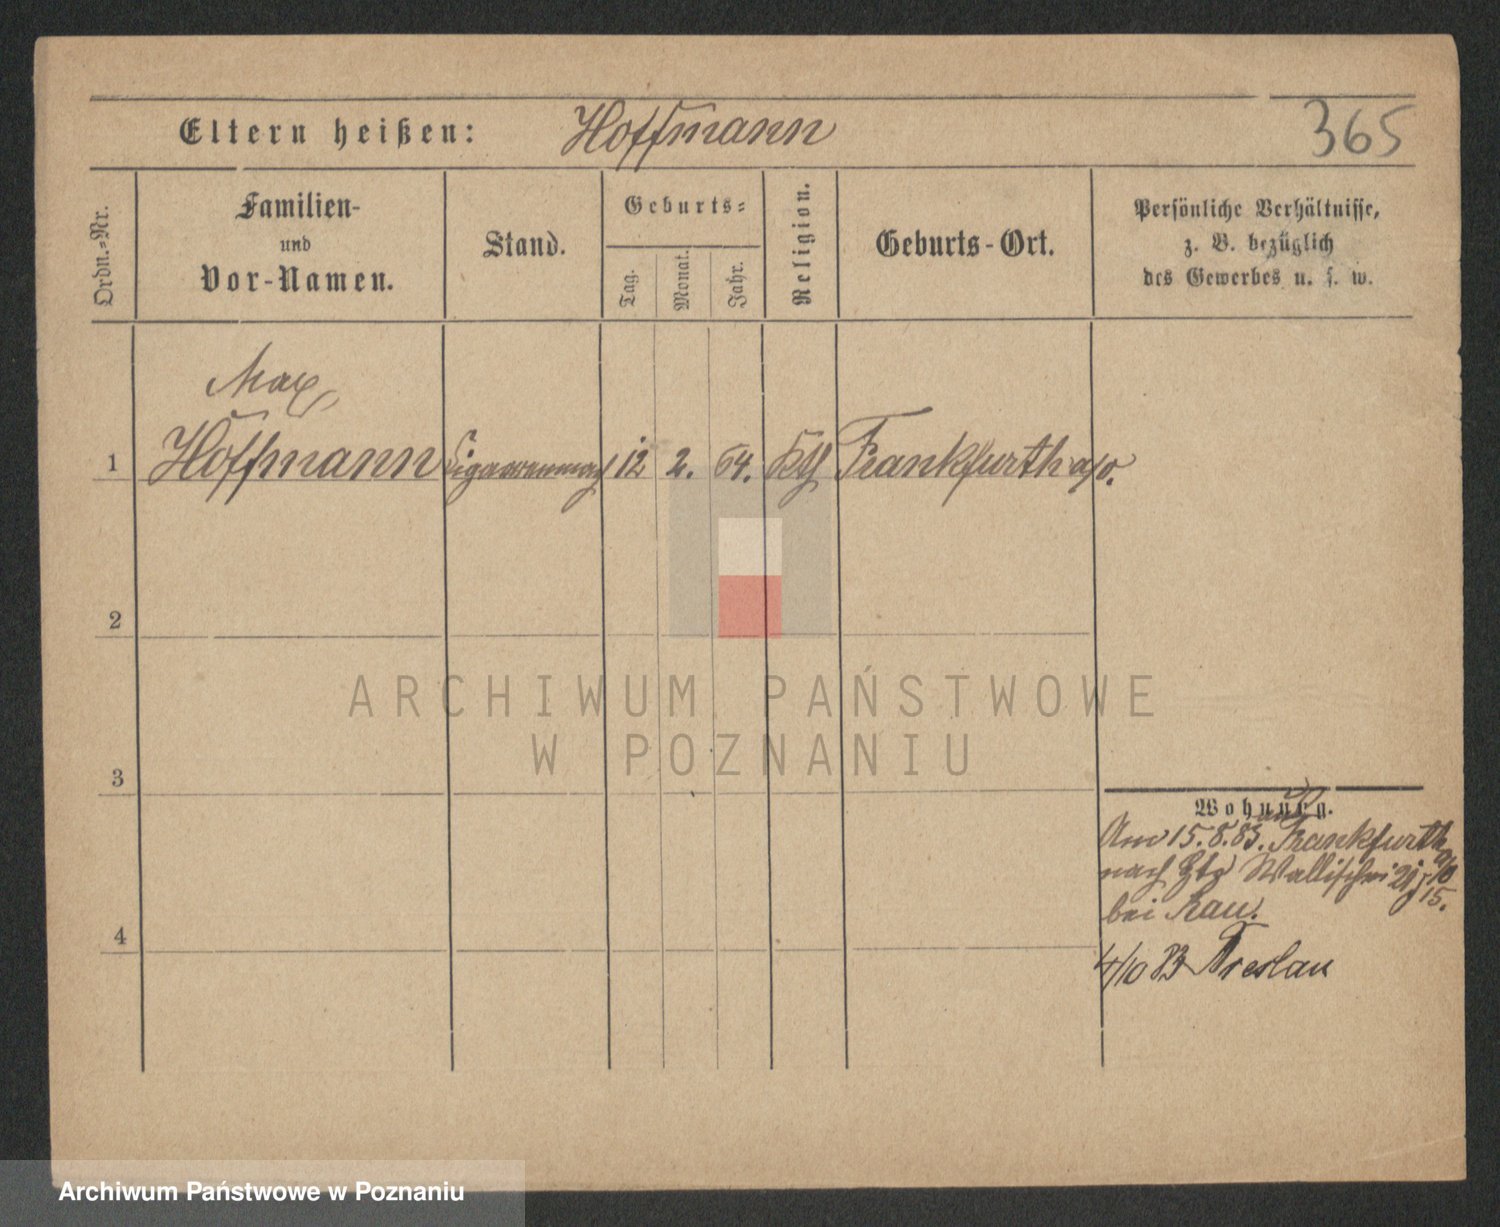 Eltern heißen: Hoffmann 365
Ordn.-Nr.
Familien-
und
Vor-Namen.
Stand.
Geburts-
Tag.
Monat.
Jahr.
Religion.
Geburts-Ort.
Persönliche Verhältnisse,
z. B. bezüglich
des Gewerbes u. s. w.
Max
1 Hoffmann Cigarrenmach 12 2. 64. Kth Frankfurth a/o.
2
3
4
ARCHIWUM PAŃSTWOWE
W POZNANIU
Wohnung.
Am 15.8.83. Frankfurth a/o
nach Wallischei
bei Rau.
4/10 83 Breslau
Archiwum Państwowe w Poznaniu